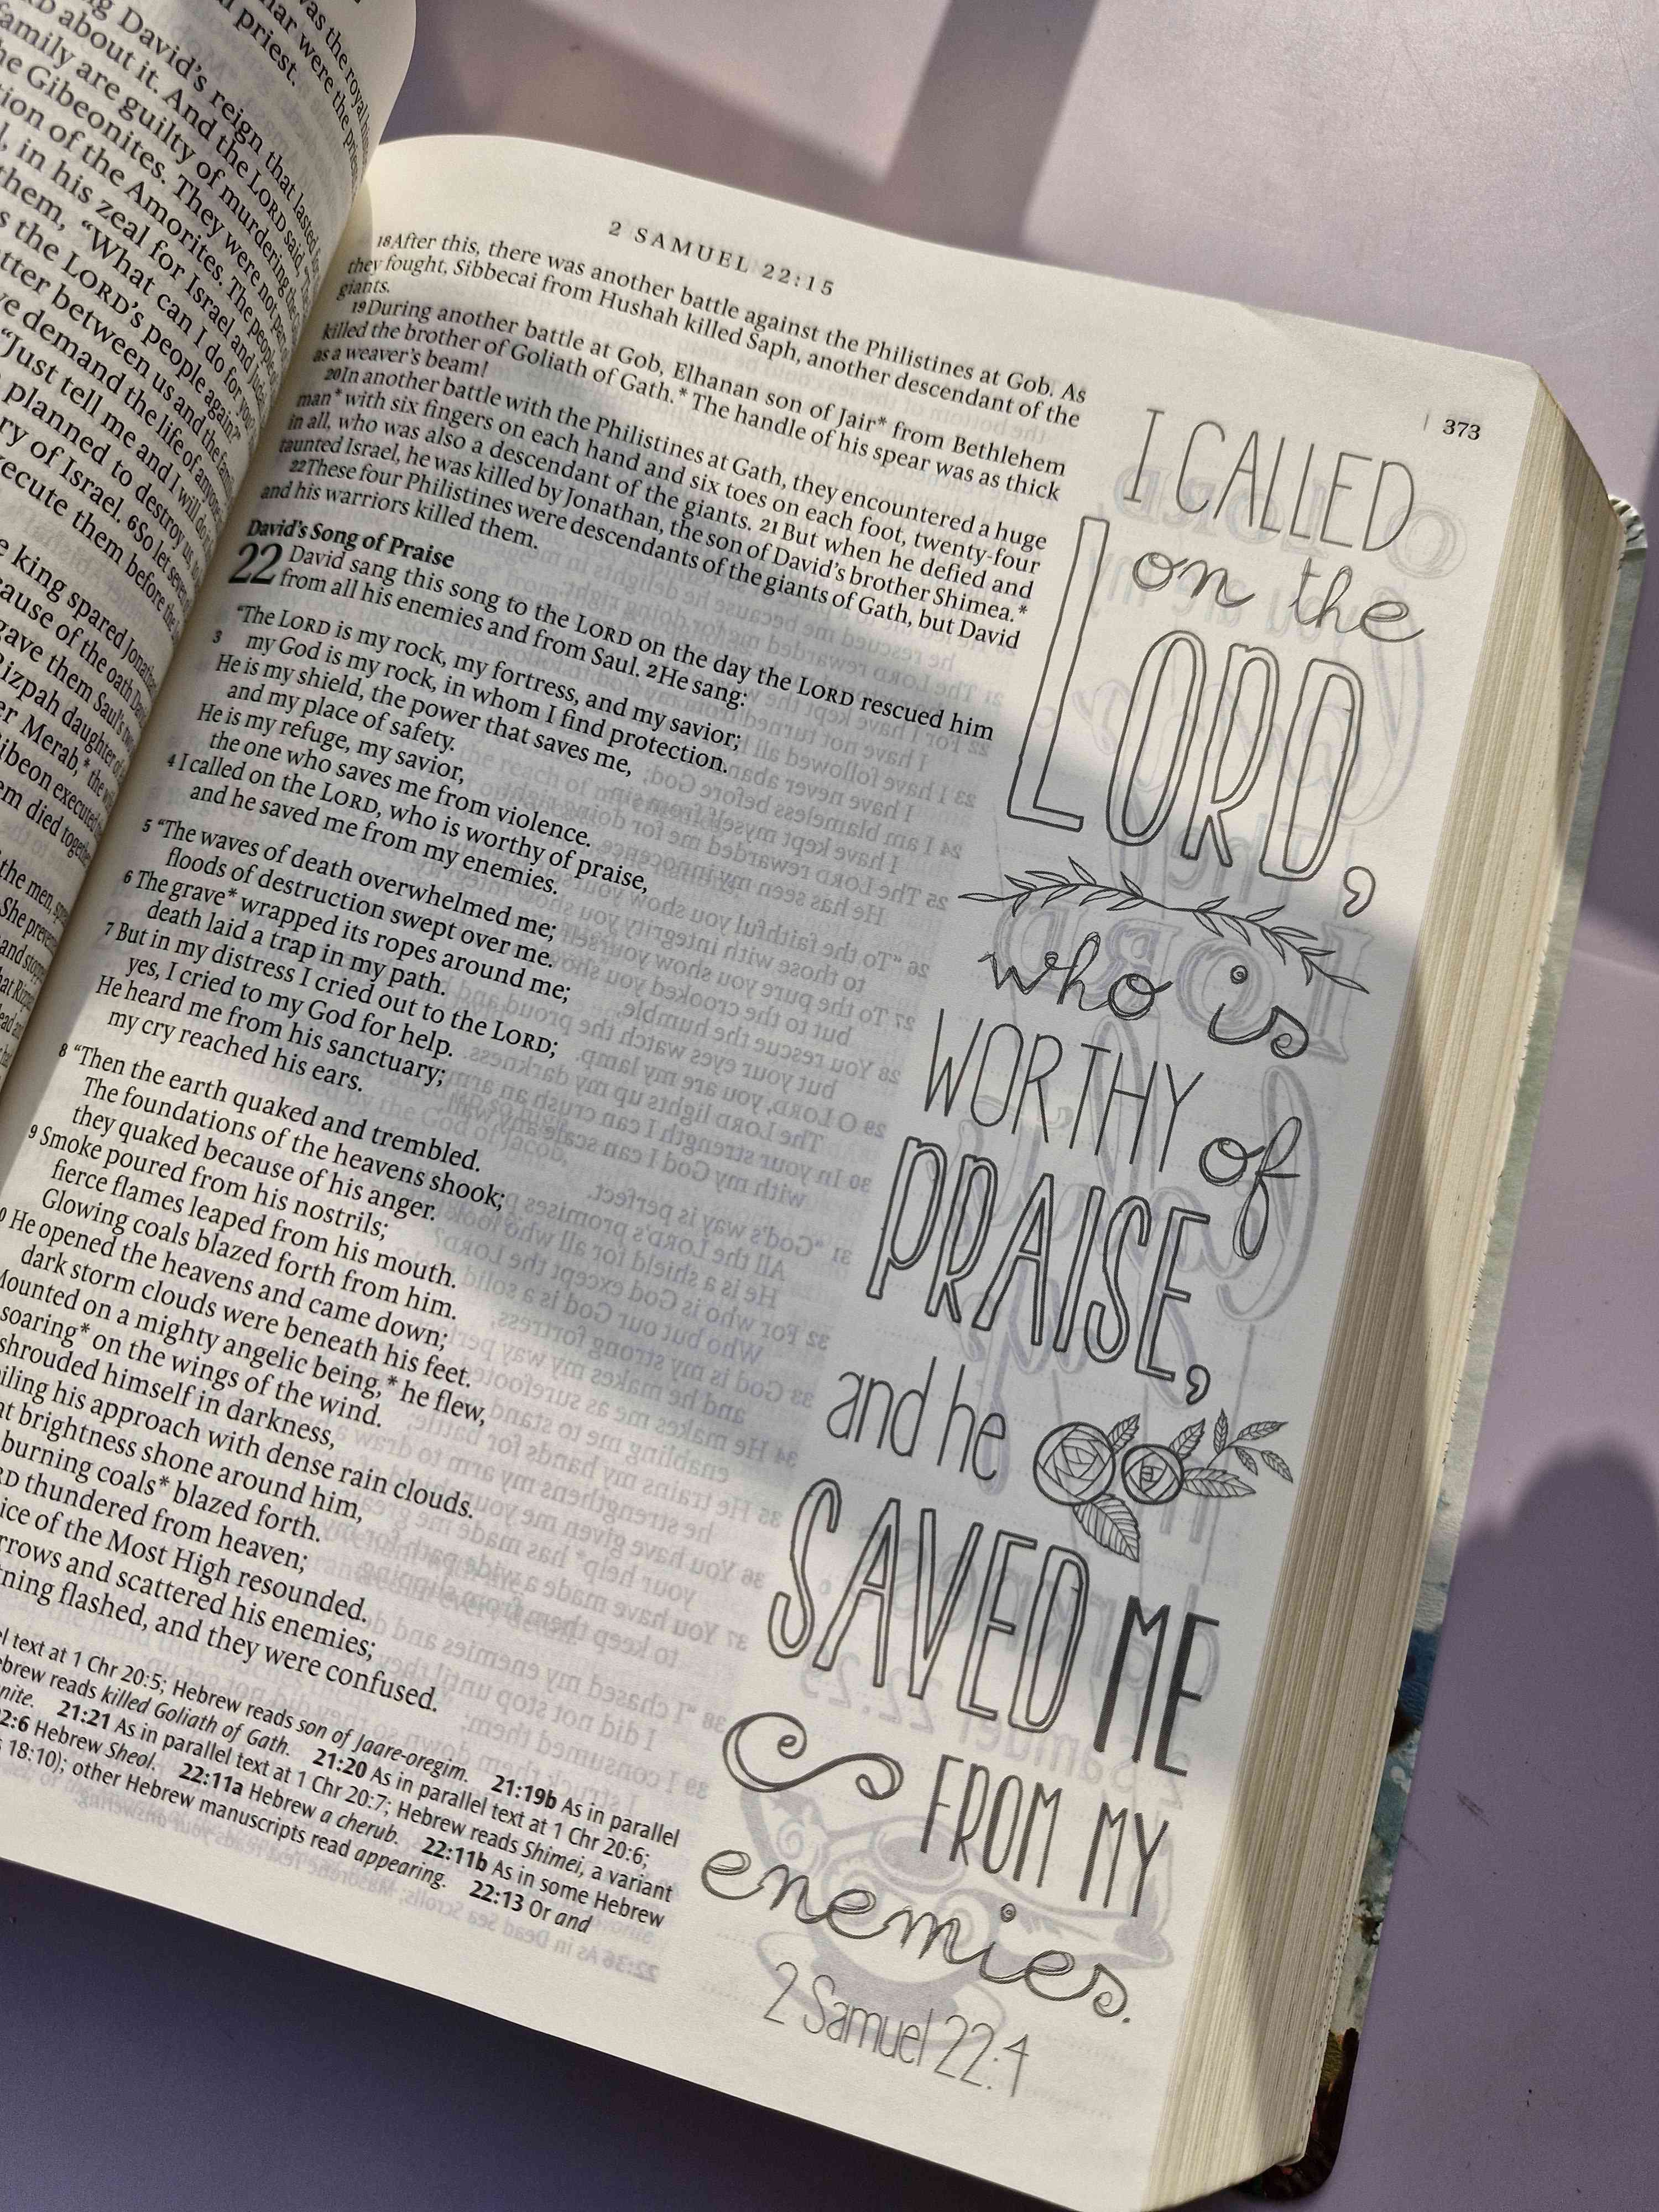 was the royal
were the
priest.
David's reign that lasted
about it. And the LORD said,
family are guilty of murdering the
Gibeonites. They were not part
of the Amorites. The people of
in his zeal for Israel and Judah
them, “What can I do for you?
the LORD's people again?”
between us and the
demand the life of anyone
“Just tell me and I will do
planned to destroy us,
of Israel. 6So let seven
execute them before the
king spared
of the oath
gave them Saul's two
Rizpah daughter of
Merab,* the
executed
died together
the men,
She
and
2 SAMUEL 22:15
373
18After this, there was another battle against the Philistines at Gob. As
they fought, Sibbecai from Hushah killed Saph, another descendant of the
giants.
19During another battle at Gob, Elhanan son of Jair* from Bethlehem
killed the brother of Goliath of Gath.* The handle of his spear was as thick
as a weaver's beam!
20In another battle with the Philistines at Gath, they encountered a huge
man* with six fingers on each hand and six toes on each foot, twenty-four
in all, who was also a descendant of the giants. 21But when he defied and
taunted Israel, he was killed by Jonathan, the son of David's brother Shimea.*
22These four Philistines were descendants of the giants of Gath, but David
and his warriors killed them.
David's Song of Praise
22 David sang this song to the LORD on the day the LORD rescued him
from all his enemies and from Saul. 2He sang:
“The LORD is my rock, my fortress, and my savior;
3 my God is my rock, in whom I find protection.
He is my shield, the power that saves me,
and my place of safety.
He is my refuge, my savior,
the one who saves me from violence.
4 I called on the LORD, who is worthy of praise,
and he saved me from my enemies.
5 “The waves of death overwhelmed me;
floods of destruction swept over me.
6 The grave* wrapped its ropes around me;
death laid a trap in my path.
7 But in my distress I cried out to the LORD;
yes, I cried to my God for help.
He heard me from his sanctuary;
my cry reached his ears.
8 “Then the earth quaked and trembled.
The foundations of the heavens shook;
they quaked because of his anger.
9 Smoke poured from his nostrils;
fierce flames leaped from his mouth.
Glowing coals blazed forth from him.
0 He opened the heavens and came down;
dark storm clouds were beneath his feet.
Mounted on a mighty angelic being,* he flew,
soaring* on the wings of the wind.
shrouded himself in darkness,
his approach with dense rain clouds.
brightness shone around him,
burning coals* blazed forth.
thundered from heaven;
of the Most High resounded.
and scattered his enemies;
flashed, and they were confused.
text at 1 Chr 20:5; Hebrew reads son of Jaare-oregim. 21:19b As in parallel
reads killed Goliath of Gath. 21:20 As in parallel text at 1 Chr 20:6;
21:21 As in parallel text at 1 Chr 20:7; Hebrew reads Shimei, a variant
Hebrew Sheol. 22:11a Hebrew a cherub. 22:11b As in some Hebrew
18:10); other Hebrew manuscripts read appearing. 22:13 Or and
I CALLED
on the
LORD,
who is
WORTHY of
PRAISE,
and he
SAVED ME
FROM MY
enemies.
2 Samuel 22:4